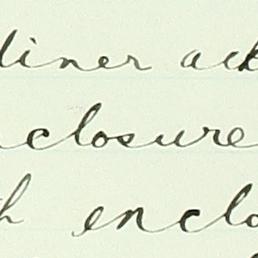 liner ack
nclosure
h enclo